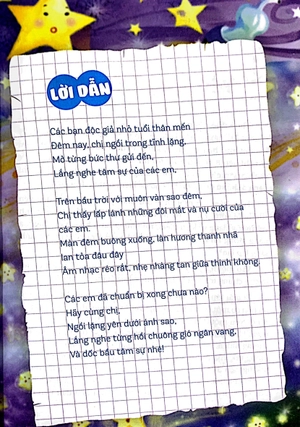 LỜI DẪN
Các bạn độc giả nhỏ tuổi thân mến
Đêm nay, chị ngồi trong tĩnh lặng,
Mở từng bức thư gửi đến,
Lắng nghe tâm sự của các em,
Trên bầu trời với muôn vàn sao đêm,
Chị thấy lấp lánh những đôi mắt và nụ cười của
các em.
Màn đêm buông xuống, làn hương thanh nhã
lan tỏa đâu đây
Âm nhạc réo rắt, nhẹ nhàng tan giữa thinh không.
Các em đã chuẩn bị xong chưa nào?
Hãy cùng chị,
Ngồi lặng yên dưới ánh sao,
Lắng nghe từng hồi chuông gió ngân vang,
Và dốc bầu tâm sự nhé!